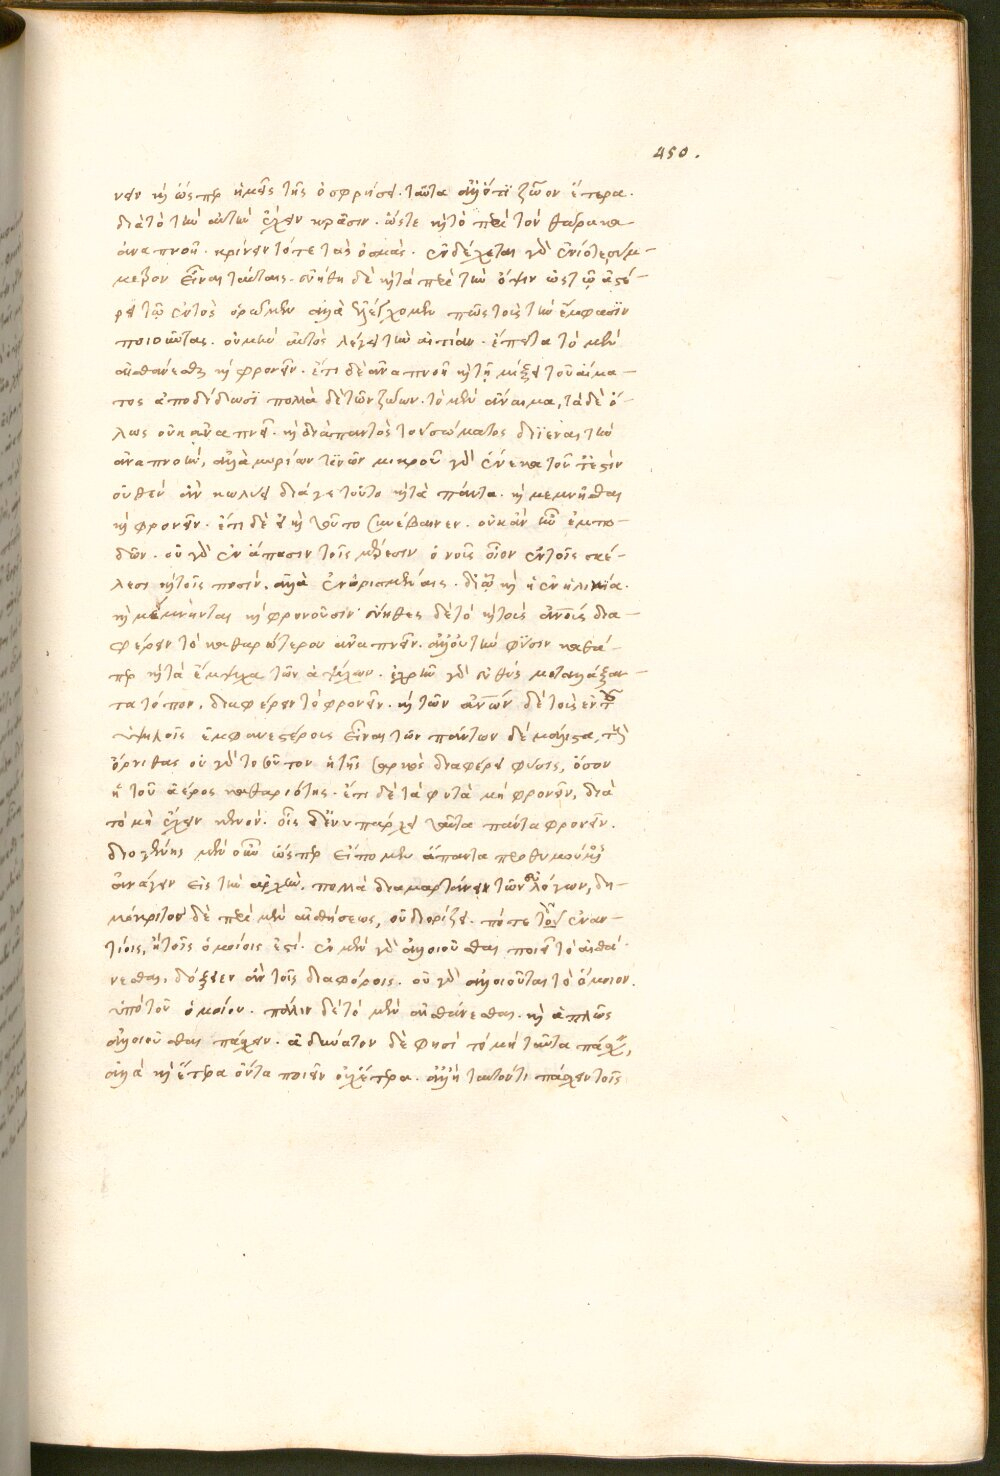 450.
νειν καὶ ὥσπερ ἡμεῖς τῆς ὀσφρήσει. ταῦτα ἀλλ' ὅτι ζῶον ἕτερα.
διὰ τὸ τὴν αὐτὴν ἔχειν κρᾶσιν. ὥστε καὶ τὸ περὶ τὸν θώρακα
ἀναπνοῆ. κρίνειν τότε τὰς ὀσμὰς. ἐνδέχεται γὰρ ἐνίοτε σύμ-
μετρον εἶναι ταύταις. εὐήθη δὲ καὶ τὰ περὶ τὴν ὄψιν ὡς τῷ ἀέ-
ρι τῷ ἐντὸς ὁρῶμεν ἀλλὰ ἐλέγχομεν πῶς τοὺς τὴν ἔμφασιν
ποιοῦντας. οὐ μὴν αὐτὸς λέγει τὴν αἰτίαν. ἔπειτα τὸ μὲν
αἰσθάνεσθαι καὶ φρονεῖν. ἔτι δὲ ἀναπνοῇ καὶ τῇ μίξει τοῦ αἵμα-
τος ἀποδίδωσι πολλὰ δὲ τῶν ζώων. τὸ μὲν ἄναιμα, τὰ δὲ ὅ-
λως οὐκ ἀναπνεῖ. καὶ διὰ παντὸς τοῦ σώματος διϊέναι τὴν
ἀναπνοὴν, ἀλλὰ μορίων τινῶν μικροῦ γὰρ ἕνεκα τοῦτ' ἔστιν
οὐθὲν ἂν κωλύει διά γε τοῦτο καὶ τὰ πάντα. καὶ μεμνῆσθαι
καὶ φρονεῖν. ἔτι δὲ εἰ καὶ τοῦτο συνέβαινεν. οὐκ ἂν ἦν ἐμπο-
δών. οὐ γὰρ ἐν ἅπασιν τοῖς μέρεσιν ὁ νοῦς οἷον ἐν τοῖς σκέ-
λεσι καὶ τοῖς ποσίν. ἀλλὰ ἐν ὡρισμένοις. δι' ὧν καὶ ἡ ἐν ἡλικία.
καὶ μέμνηνται καὶ φρονοῦσιν· εὔηθες δὲ τὸ καὶ τοὺς ἀνους δια-
φέρειν τὸ καθαρώτερον ἀναπνεῖν. ἀλλ' οὐ τὴν φύσιν καθά-
περ καὶ τὰ ἔμψυχα τῶν ἀψύχων. ἐχρῆν γὰρ εὐθὺς μεταλλάξαν-
τα τόπον. διαφέρειν τὸ φρονεῖν. καὶ τῶν ἀνων δὲ τοὺς ἐν τ
ὑψηλοῖς ἐμφανεστέρους εἶναι τῶν πάντων δὲ μάλιστα, τοὺς
ὄρνιθας οὐ γὰρ τοσοῦτον ἡ τῆς σαρκὸς διαφέρει φύσις, ὅσον
ἡ τοῦ ἀέρος καθαριότης. ἔτι δὲ τὰ φυτὰ μὴ φρονεῖν, διὰ
τὸ μὴ ἔχειν κενόν. οἷς δὲ ὑπάρχει ταῦτα πάντα φρονεῖν.
διογένης μὲν οὖν ὥσπερ εἴπομεν ἅπαντα προθυμούμενος
ἀνάγειν εἰς τὴν ἀρχὴν. πολλὰ διαμαρτάνει τῶν εὐλόγων, δη-
μόκριτος δὲ περὶ μὲν αἰσθήσεως, οὐ διορίζει. πότε τῶν ἐναν-
τίοις, ἢ τοῖς ὁμοίοις ἐστί. εἰ μὲν γὰρ ἀλλοιοῦσθαι ποιεῖ τὸ αἰσθά-
νεσθαι. δόξειεν ἂν τοῖς διαφόροις. οὐ γὰρ ἀλλοιοῦται τὸ ὅμοιον.
ὑπὸ τοῦ ὁμοίου. πάλιν δὲ τὸ μὲν αἰσθάνεσθαι. καὶ ἁπλῶς
ἀλλοιοῦσθαι πάσχειν. ἀδύνατον δὲ φησὶ τὸ μὴ ταῦτα πάσχειν,
ἀλλὰ καὶ ἕτερα ὄντα ποιεῖν οὐχ ἕτερα. ἀλλ' ἢ ταυτόν τι πάσχειν τοῖς